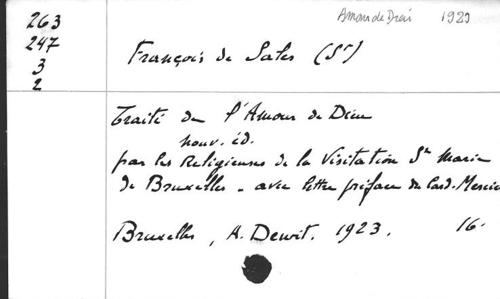 263
247
3
2
Amour de Dieu 1923
François de Sales (St)
Traité de l'Amour de Dieu
nouv. éd.
par les Religieuses de la Visitation Ste Marie
de Bruxelles - avec lettre préface du Card. Mercier
Bruxelles, A. Dewit. 1923. 16°